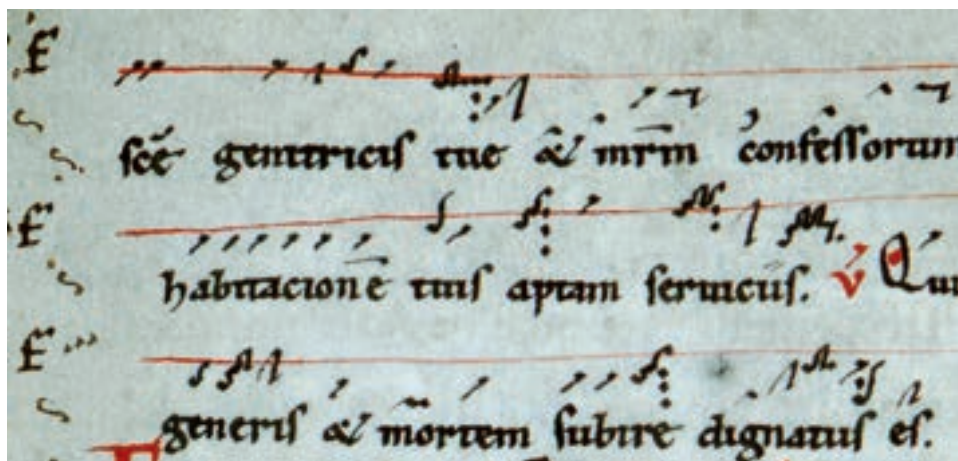 F sc̄e genitricis tue & mr̄m confessorum
F habitacionē tuis aptam seruiciis. v̄ Qui
F generis & mortem subire dignatus es.